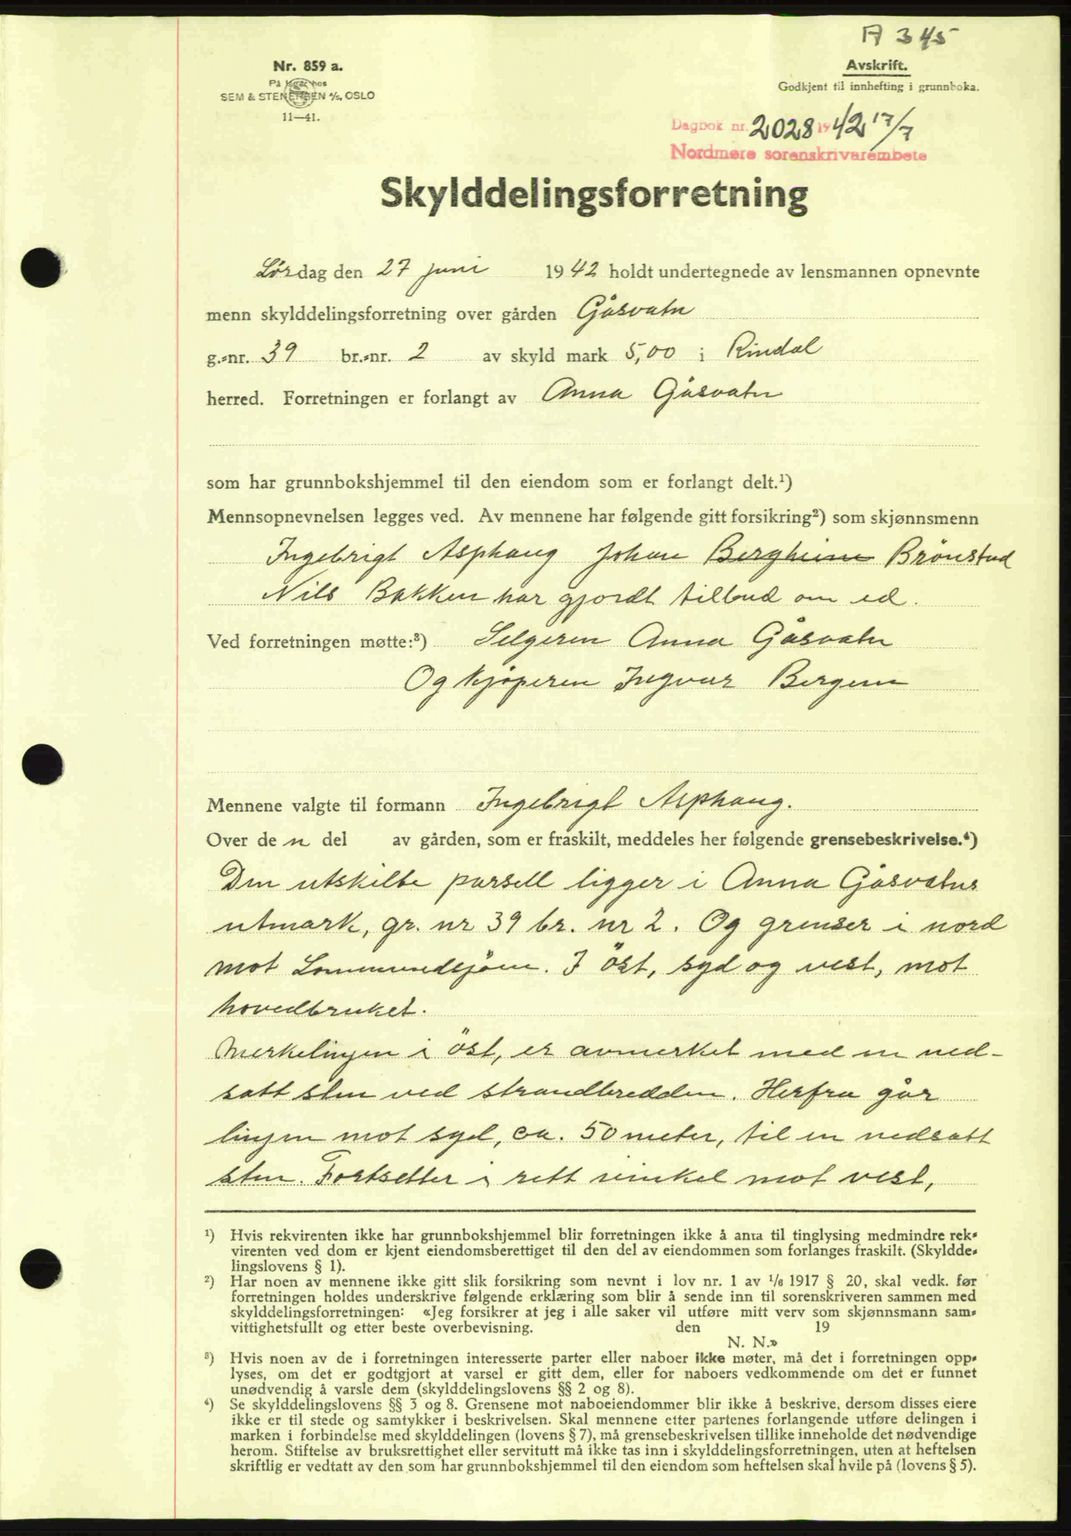 A 345
Nr. 859 a.
På lager hos
SEM & STENERSEN A/S, OSLO
11—41.
Avskrift.
Godkjent til innhefting i grunnboka.
Dagbok nr. 2028 1942 17/7
Nordmøre sorenskrivarembete
Skylddelingsforretning
Lørdag den 27 juni 1942 holdt undertegnede av lensmannen opnevnte
menn skylddelingsforretning over gården Gåsvatn
g.-nr. 39 br.-nr. 2 av skyld mark 5,00 i Rindal
herred. Forretningen er forlangt av Anna Gåsvatn
som har grunnbokshjemmel til den eiendom som er forlangt delt.¹)
Mennsopnevnelsen legges ved. Av mennene har følgende gitt forsikring²) som skjønnsmenn
Ingebrigt Asphaug Johan Bergheim Brønstad
Nils Bakken har gjordt tilbud om ed.
Ved forretningen møtte:³) Selgeren Anna Gåsvatn
Og kjøperen Ingvar Bergem
Mennene valgte til formann Ingebrigt Asphaug.
Over den del av gården, som er fraskilt, meddeles her følgende grensebeskrivelse.⁴)
Den utskilte parsell ligger i Anna Gåsvatns
utmark, gr. nr 39 br. nr 2. Og grenser i nord
mot Lommundsjöen. I öst, syd og vest, mot
hovedbruket.
Merkelinjen i öst, er avmerket med en ned-
satt sten ved strandbredden. Herfra går
linjen mot syd, ca. 50 meter, til en nedsatt
sten. Fortsetter i rett vinkel mot vest,
¹) Hvis rekvirenten ikke har grunnbokshjemmel blir forretningen ikke å anta til tinglysing medmindre rek-
virenten ved dom er kjent eiendomsberettiget til den del av eiendommen som forlanges fraskilt. (Skyldde-
lingslovens § 1).
²) Har noen av mennene ikke gitt slik forsikring som nevnt i lov nr. 1 av 1/6 1917 § 20, skal vedk. før
forretningen holdes underskrive følgende erklæring som blir å sende inn til sorenskriveren sammen med
skylddelingsforretningen: «Jeg forsikrer at jeg i alle saker vil utføre mitt verv som skjønnsmann sam-
vittighetsfullt og etter beste overbevisning. den 19
N. N.»
³) Hvis noen av de i forretningen interesserte parter eller naboer ikke møter, må det i forretningen opp-
lyses, om det er godtgjort at varsel er gitt dem, eller for naboers vedkommende om det er funnet
unødvendig å varsle dem (skylddelingslovens §§ 2 og 8).
⁴) Se skylddelingslovens §§ 3 og 8. Grensene mot naboeiendommer blir ikke å beskrive, dersom disses eiere
ikke er til stede og samtykker i beskrivelsen. Skal mennene etter partenes forlangende utføre delingen i
marken i forbindelse med skylddelingen (lovens § 7), må grensebeskrivelsen tillike inneholde det nødvendige
herom. Stiftelse av bruksrettighet eller servitutt må ikke tas inn i skylddelingsforretningen, uten at heftelsen
skriftlig er vedtatt av den som har grunnbokshjemmel til den eiendom som heftelsen skal hvile på (lovens § 5).